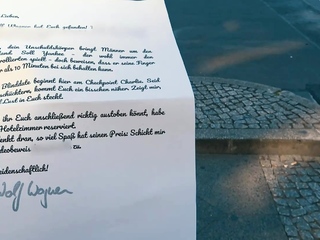 Lieben,
Wagner hat Euch gefunden!
, dein Unschuldskörper bringt Männer um den
tand. Soll Yankee - der wohl immer den
rollierten spielt - doch beweisen, dass er seine Finger
r als 10 Minuten bei sich behalten kann.
Blinddate beginnt hier am Checkpoint Charlie. Seid
schüchtern, kommt Euch ein bisschen näher. Zeigt mir,
l Lust in Euch steckt.
ihr Euch anschließend richtig austoben könnt, habe
Hotelzimmer reserviert.
denkt dran, so viel Spaß hat seinen Preis: Schickt mir
ideobeweis zu.
eidenschaftlich!
Wolf Wagner